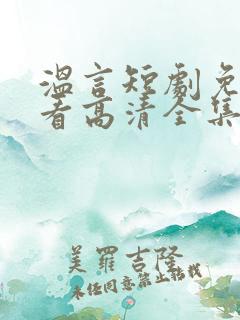 溫言短劇免
看高清全集
美羅吉隆
未经同意禁止转载